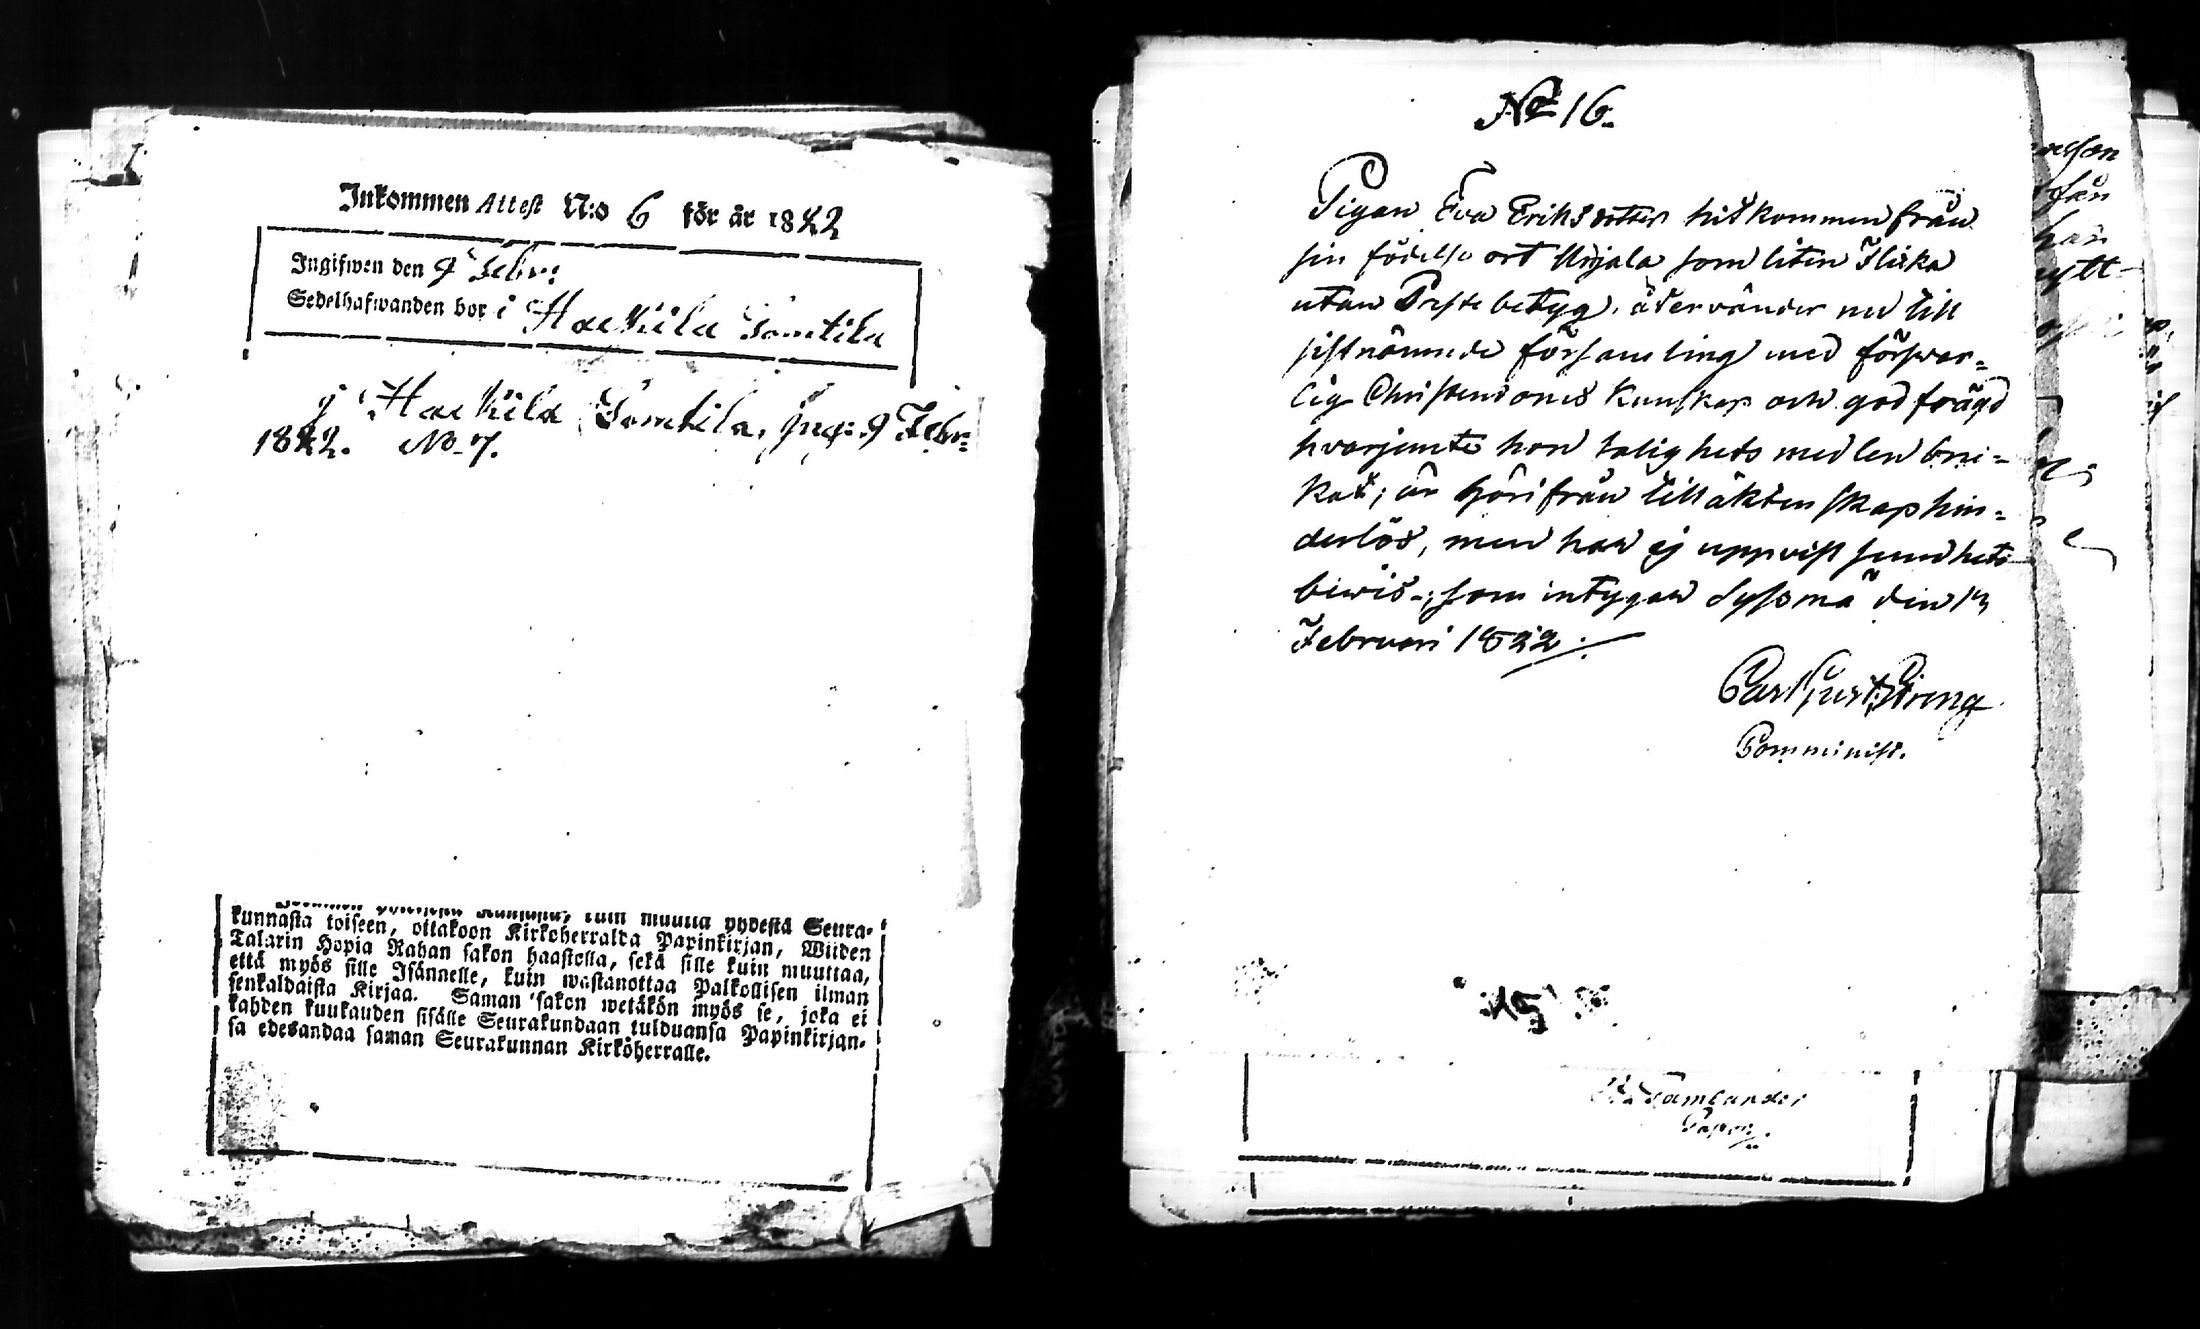 Inkommen Attest N:o 6 för år 1822
Ingifwen den 9 Febr:
Sedelhafwanden bor i Haekilä Tomtila
i Haekilä Tomtila, Ing: 9 Febr:
1822. No 7.
kuin muutta yhdestä Seura-
kunnasta toiseen, ottakoon Kirkoherralda Papinkirjan, Wiiden
Talarin Hopia Rahan sakon haastolla, sekä sille kuin muuttaa,
että myös sille Isännelle, kuin wastanottaa Palkollisen ilman
senkaldaista Kirjaa. Saman sakon wetäkön myös se, joka ei
kahden kuukauden sisälle Seurakundaan tulduansa Papinkirjan-
sa edesandaa saman Seurakunnan Kirkoherralle.
No 16.
Pigan Eva Eriksdotter hitkommen från
sin födelse ort Urjala som liten Flicka
utan Preste betyg, återvänder nu till
sistnämnde församling med försvar-
lig Christendoms kunskap och god frägd
hvarjemte hon salighets medlen bru-
kat; är härifrån till äktenskap hin-
derlös, men har ej uppvist sundhets
bevis; som intygar Sysmä den
Februari 1822
Carl Gust
Comminist.
15